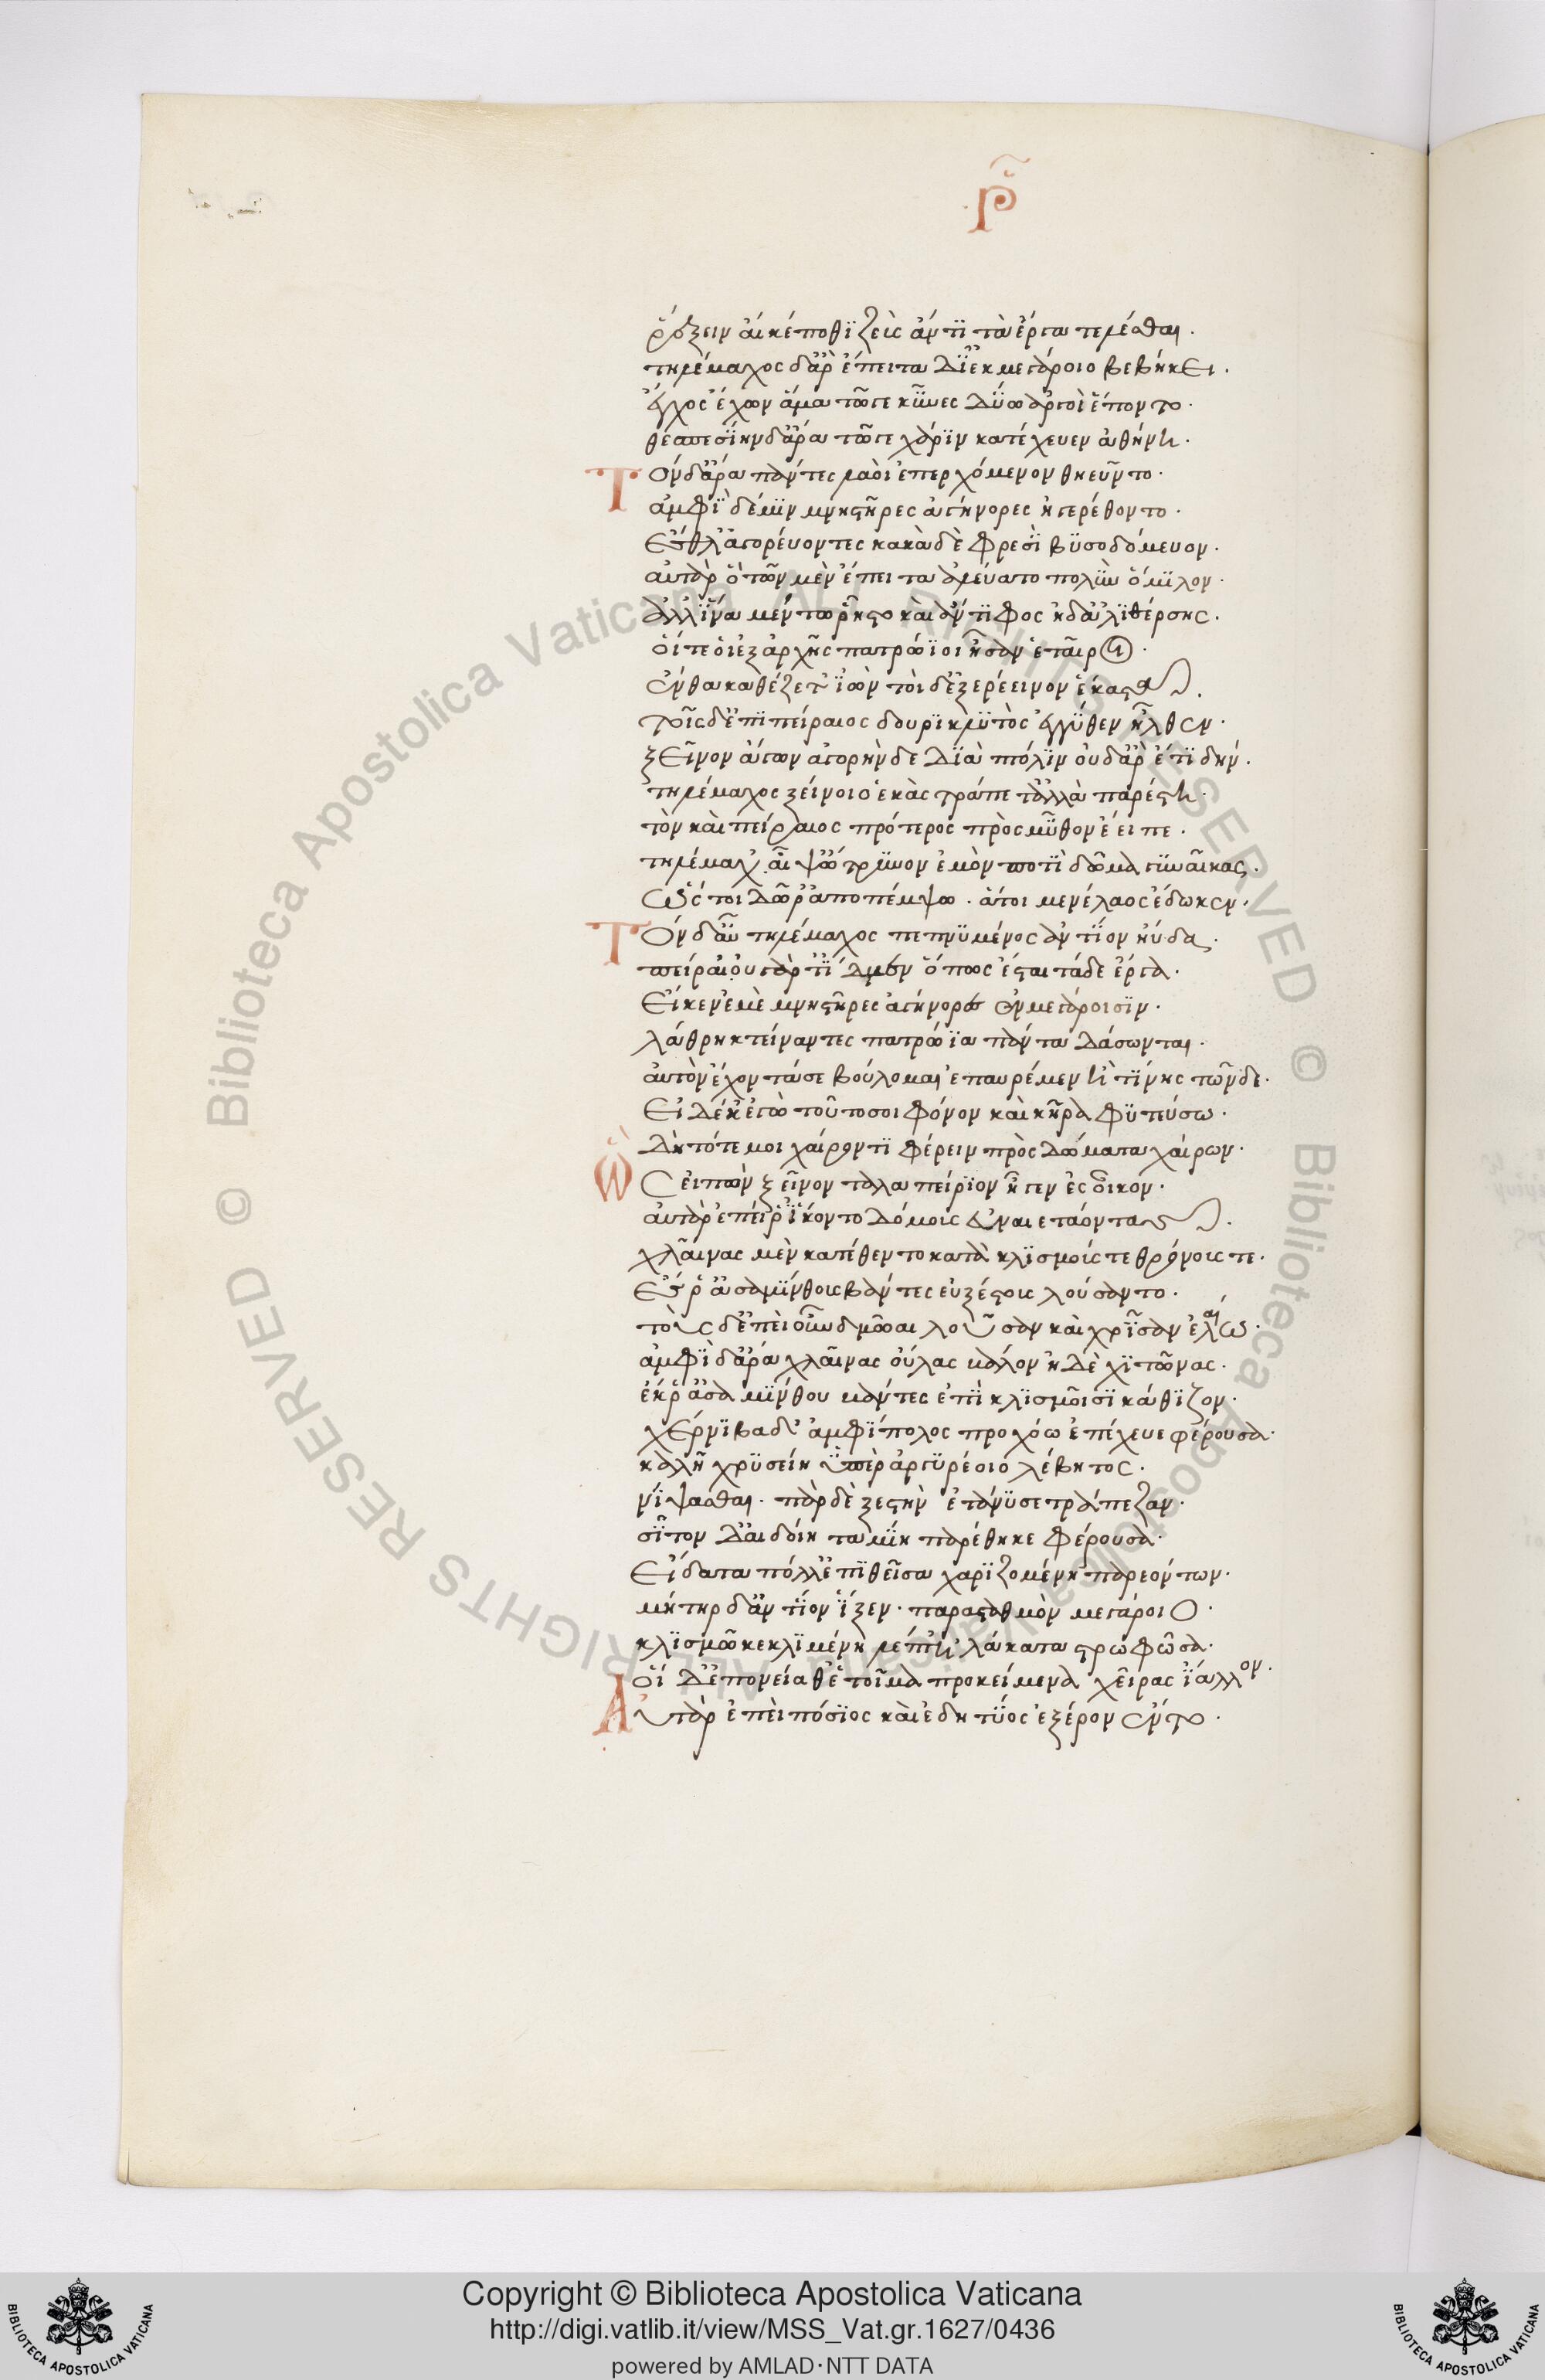 ρ̃
ῥέξειν αἴ κέ ποθϊ ζεὺς ἄντϊτα ἔργα τελέσθαι.
τηλέμαχος δ' ἄρ' ἔπειτα δϊ' ἐκ μεγάροιο βεβήκει.
ἔγχος ἔχων ἅμα τῶγε κΰνες δΰω ἀργοὶ ἕποντο.
θεσπεσΐην δ' ἄρα τῶγε χάρϊν κατέχευεν ἀθήνη.
Τὸν δ' ἄρα πάντες λαοὶ ἐπερχόμενον θηεῦντο.
ἀμφὶ δέ μϊν μνηστῆρες ἀγήνορες ἠγερέθοντο.
ἔσθλ' ἀγορεύοντες κακὰ δὲ φρεσὶ βϋσοδόμευον.
αὐτὰρ ὁ τῶν μὲν ἔπειτα ἀλεύατο πολὺν ὅμϊλον.
ἀλλ' ἵνα μέντωρ ἧστο καὶ ἄντϊφος ἠδ' ἁλϊθέρσης.
οἵ τέ οἱ ἐξ ἀρχῆς πατρώϊοι ἦσαν ἑταῖροι.
ἔνθα καθέζετ' ἰὼν τοὶ δ' ἐξερέεινον ἕκαστα.
τοῖς δ' ἐπϊ πείραιος δουρϊκλϋτὸς ἐγγΰθεν ἦλθεν.
ξεῖνον ἄγων ἀγορὴν δε δϊὰ πτόλϊν οὐδ' ἄρ' ἔτϊ δήν.
τηλέμαχος ξείνοιο ἑκὰς τράπετ' ἀλλὰ παρέστη.
τὸν καὶ πείραιος πρότερος πρὸς μῦθον ἔειπε.
τηλέμαχ' αἶψ' ὄτρϋνον ἐμὸν ποτϊ δῶμα γϋναῖκας.
ὥς τοι δῶρ' ἀποπέμψω. ἅ τοι μενέλαος ἔδωκεν.
Τὸν δ' αὖ τηλέμαχος πεπνϋμένος ἀντΐον ηὔδα.
πείραι' οὐ γάρ τ' ἴδμεν ὅπως ἔσται τάδε ἔργα.
εἴ κεν ἐμὲ μνηστῆρες ἀγήνορες ἐν μεγάροισϊν.
λάθρη κτείναντες πατρώϊα πάντα δάσωνται.
αὐτὸν ἔχοντά σε βούλομαι ἐπαυρέμεν ἤ τϊν' ἧς τῶνδε.
εἰ δέ κ' ἐγὼ τούτοσοι φόνον καὶ κῆρα φϋτεύσω.
δὴ τότε μοι χαίροντϊ φέρειν πρὸς δώματα χαίρων.
Ὣς εἰπὼν ξεῖνον ταλαπείρϊον ἦγεν ἐς οἶκον.
αὐτὰρ ἐπεί ῥ' ἵκοντο δόμοις εὐναιετάοντας.
χλαίνας μὲν κατέθεντο κατὰ κλϊσμοίς τε θρόνοις τε.
ἔς ῥ' ἀσαμίνθοις βάντες ἐϋξέστοις λούσαντο.
τοὺς δ' ἐπεὶ οὖν δμωαι λοῦσαν καὶ χρῖσαν ἐλαίω.
ἀμφὶ δ' ἄρα χλαίνας οὔλας βάλον ἠδὲ χϊτῶνας.
ἔκ ῥ' ἀσαμΐνθου βάντες ἐπὶ κλϊσμοῖσϊ κάθϊζον.
χέρνϊβα δ' ἀμφΐπολος προχόω ἐπέχευε φέρουσα.
καλῆ χρϋσείη ὑπὲρ ἀργϋρέοιο λέβητος.
νΐψασθαι. παρ δὲ ξεστὴν ἐτάνϋσε τράπεζαν.
σῖτον δ' αἰδοίη ταμΐη παρέθηκε φέρουσα.
εἴδατα πόλλ' ἐπϊθεῖσα χαρϊζομένη παρεόντων.
μήτηρ δ' ἀντΐον ἷζεν. παρα σταθμὸν μεγάροιο.
κλϊσμῶ κεκλϊμένη λέπτ' ἠλάκατα στρωφῶσα.
Οἱ δ' ἐπ' ονείαθ' ἑτοῖμα προκείμενα χεῖρας ἴαλλον.
Αὐτὰρ ἐπεὶ πόσϊος καὶ ἐδητΰος ἐξέρον ἕντο.
Copyright © Biblioteca Apostolica Vaticana
http://digi.vatlib.it/view/MSS_Vat.gr.1627/0436
powered by AMLAD·NTT DATA